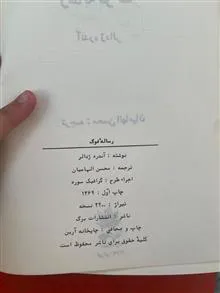 آندره ژدالر
رساله فوگ
نوشته : آندره ژدالر
ترجمه : محسن الهامیان
اجراء طرح : گرافیک سوره
چاپ اول : ۱۳۶۹
تیراژ : ۲۲۰۰ نسخه
ناشر : انتشارات برگ
چاپ و صحافی : چاپخانه آرین
کلیهٔ حقوق برای ناشر محفوظ است